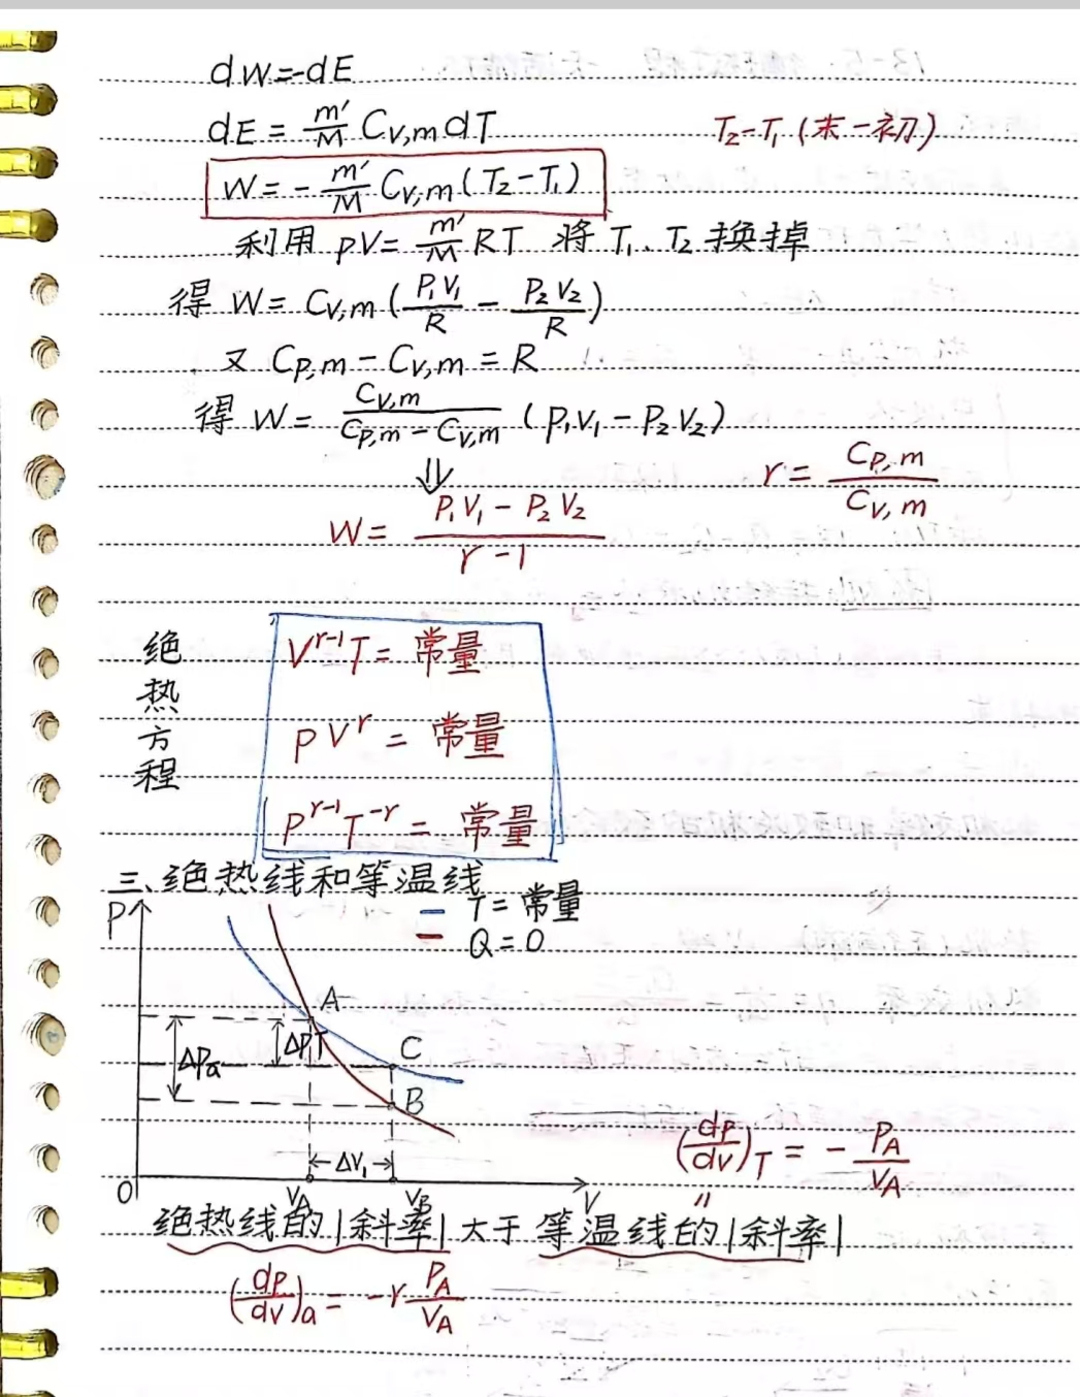 dW=-dE
dE = m'/M C_V,m dT    T₂-T₁ (末-初)
W = - m'/M C_V,m (T₂-T₁)
利用 pV = m'/M RT 将 T₁、T₂ 换掉
得 W = C_V,m (P₁V₁/R - P₂V₂/R)
又 C_P,m - C_V,m = R
得 W = C_V,m/(C_P,m - C_V,m) (P₁V₁ - P₂V₂)
⇓    r = C_P,m/C_V,m
W = (P₁V₁ - P₂V₂)/(r-1)
绝热方程
V^(r-1) T = 常量
P V^r = 常量
P^(r-1) T^(-r) = 常量
三、绝热线和等温线
P
— T = 常量
— Q = 0
A
ΔP_a ΔP_T C
B
ΔV₁
0 V_A V_B V
(dp/dv)_T = - P_A/V_A
〃
绝热线的|斜率| 大于 等温线的|斜率|
(dp/dv)_a = -r P_A/V_A